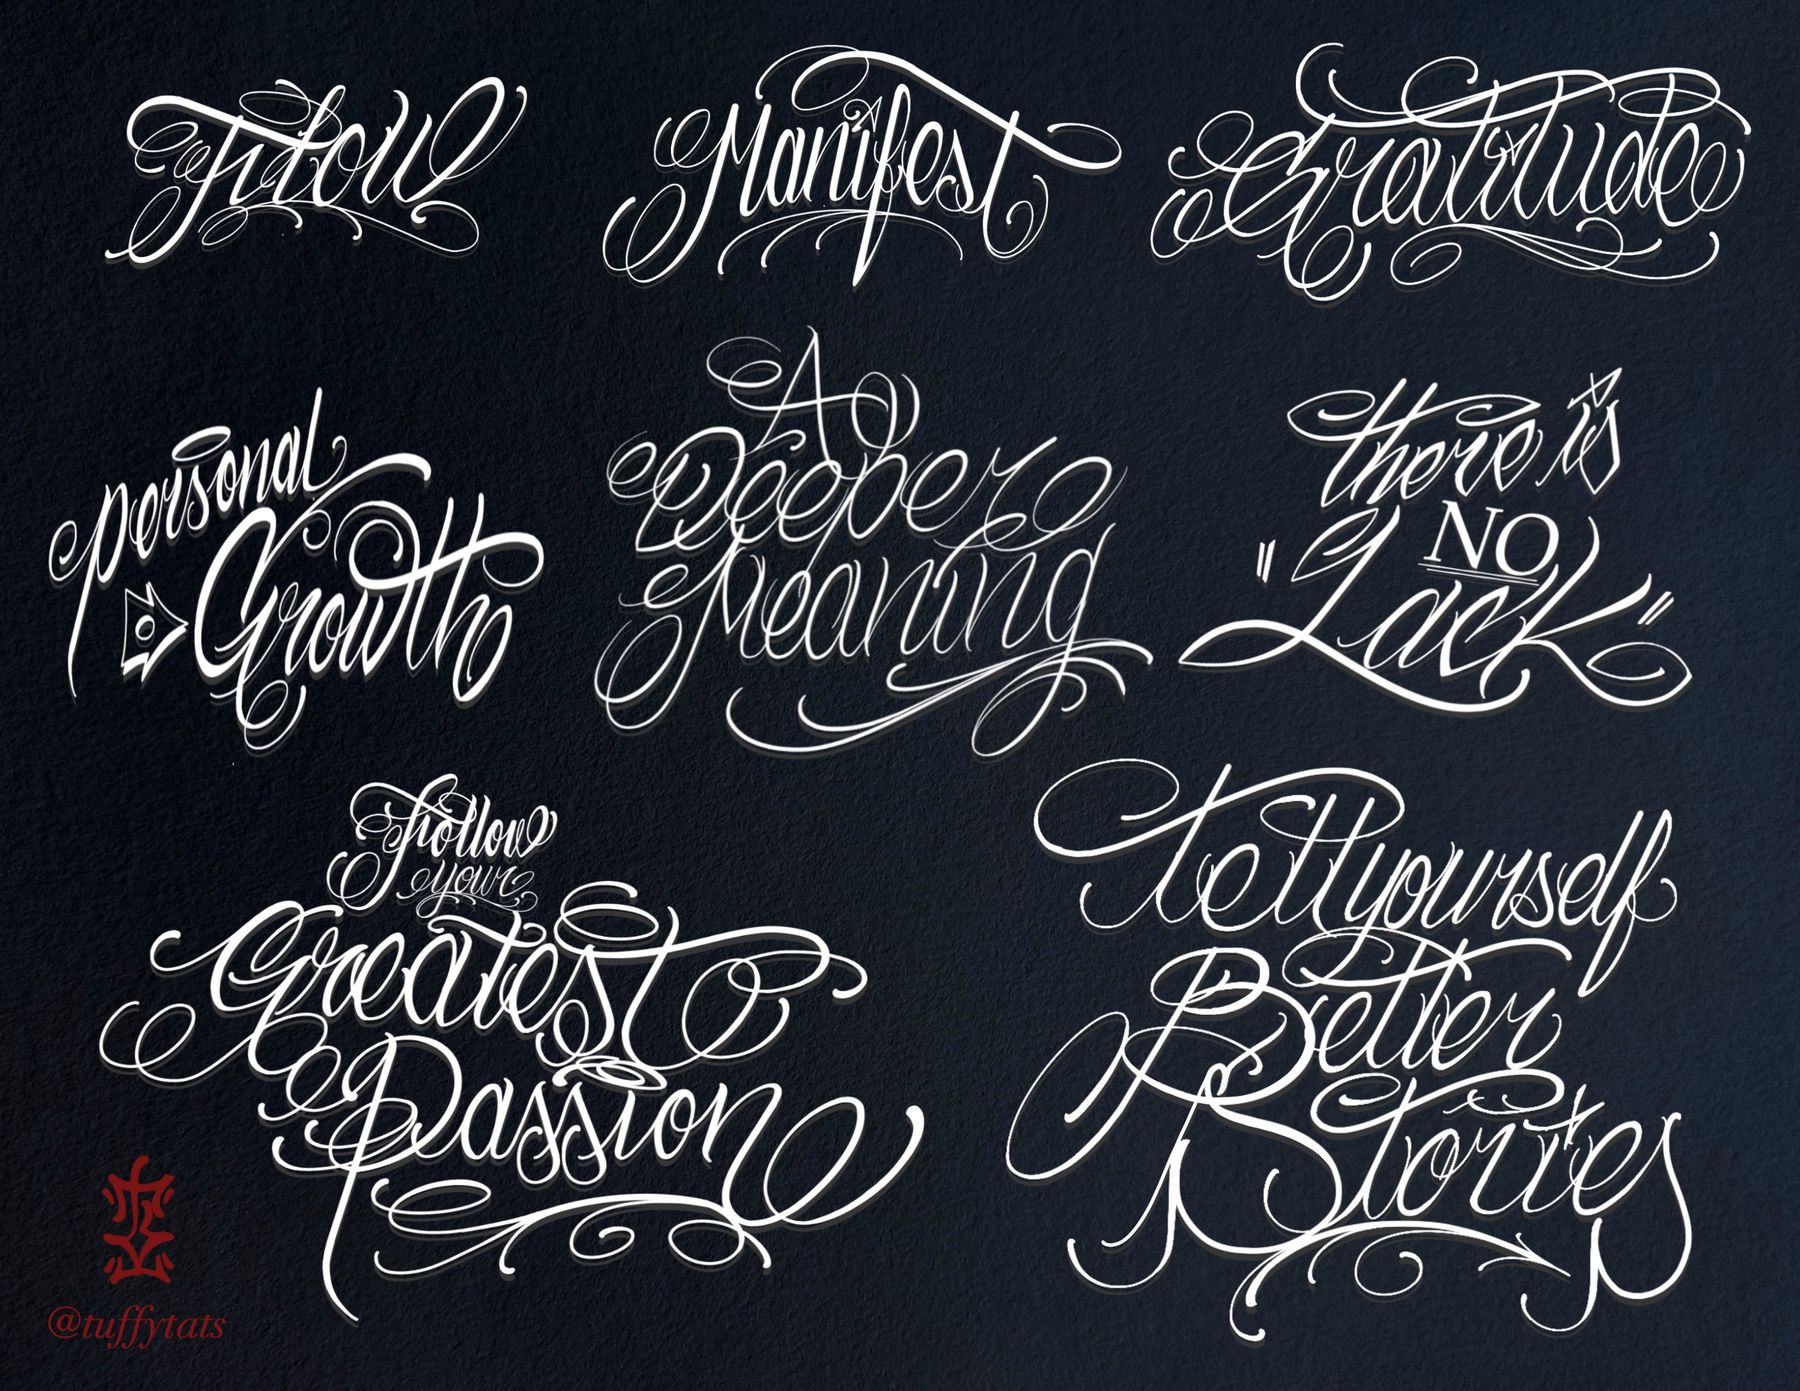 Flow
Manifest
Gratitude
personal
Growth
A
Deeper
Meaning
there is
NO
"Lack"
Follow
your
Greatest
Passion
tell yourself
Better
Stories
@tuffytats